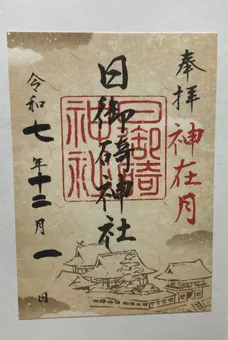 奉拝
神在月
日御碕神社
日御碕神社
令和七年十二月一日